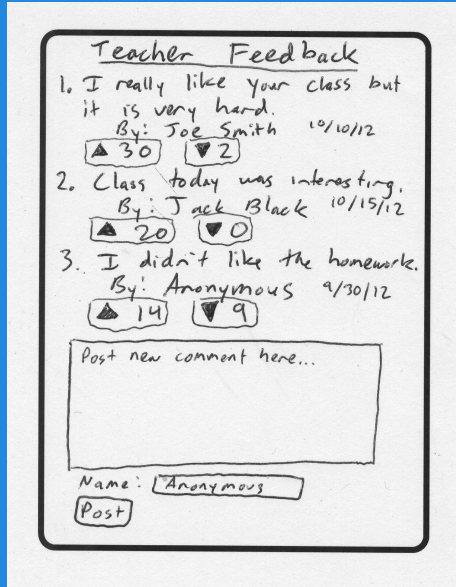 Teacher Feedback
1. I really like your class but
it is very hard.
By: Joe Smith 10/10/12
▲ 30 ▼ 2
2. Class today was interesting.
By: Jack Black 10/15/12
▲ 20 ▼ 0
3. I didn't like the homework.
By: Anonymous 9/30/12
▲ 14 ▼ 9
Post new comment here...
Name: Anonymous
Post